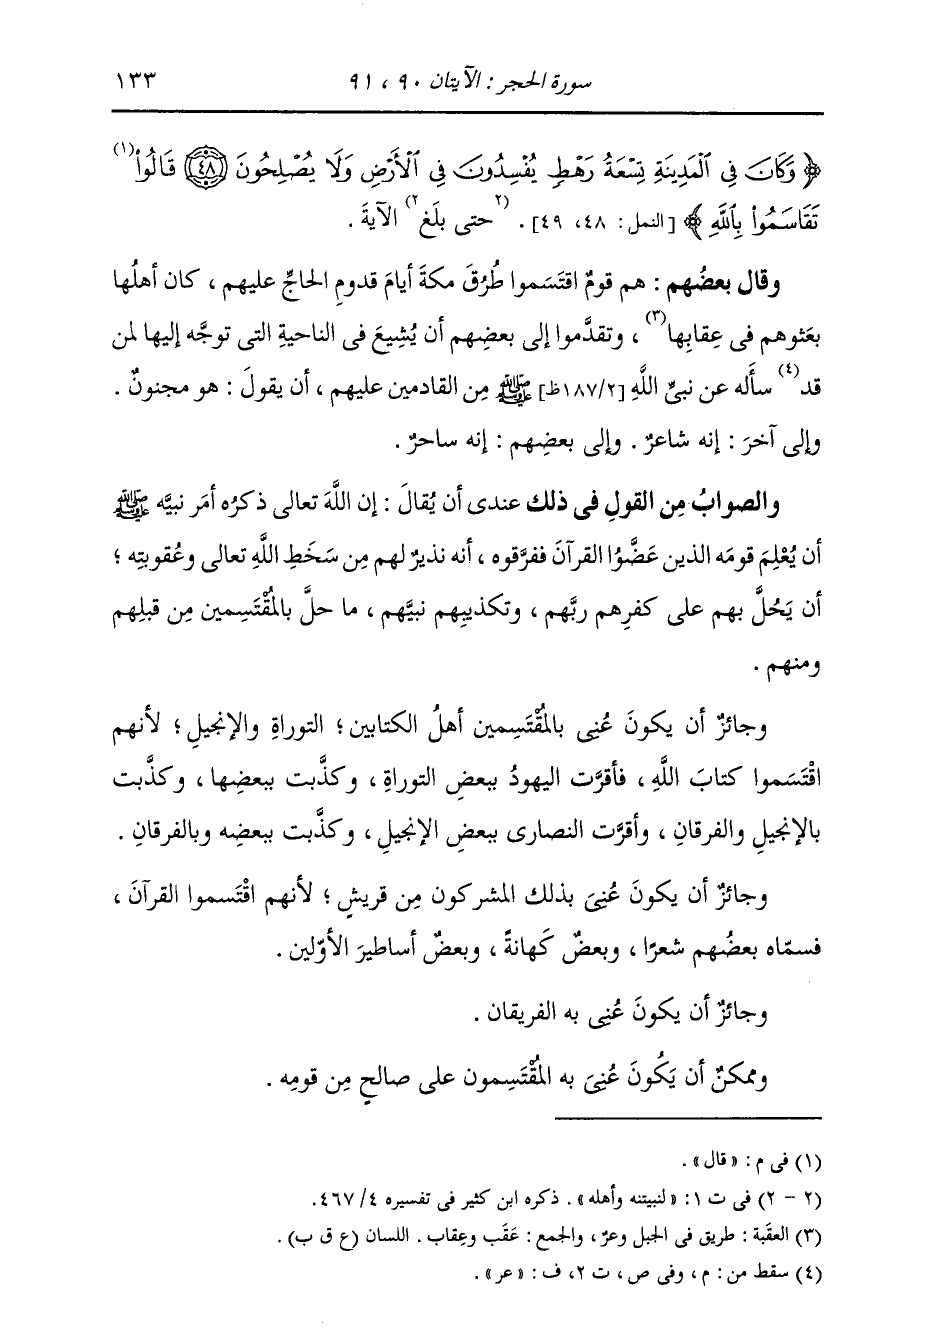 سورة الحجر : الآيتان ٩٠ ، ٩١
١٣٣
﴿ وَكَانَ فِي ٱلْمَدِينَةِ تِسْعَةُ رَهْطٍ يُفْسِدُونَ فِي ٱلْأَرْضِ وَلَا يُصْلِحُونَ (٤٨) قَالُواْ(١)
تَقَاسَمُواْ بِٱللَّهِ ﴾ [النمل : ٤٨، ٤٩] . (٢حتى بلَغ٢) الآيةَ .
وقال بعضُهم : هم قومٌ اقتَسَموا طُرُقَ مكةَ أيامَ قدومِ الحاجِّ عليهم ، كان أهلُها
بعَثوهم فى عِقابِها(٣) ، وتقدَّموا إلى بعضِهم أن يُشِيعَ فى الناحيةِ التى توجَّه إليها لمن
قد(٤) سأَله عن نبيِّ اللَّهِ [١٨٧/٢ظ] ﷺ مِن القادمين عليهم ، أن يقولَ : هو مجنونٌ .
وإلى آخرَ : إنه شاعرٌ . وإلى بعضِهم : إنه ساحرٌ .
والصوابُ مِن القولِ فى ذلك عندى أن يُقالَ : إن اللَّهَ تعالى ذكرُه أمَر نبيَّه ﷺ
أن يُعْلِمَ قومَه الذين عَضَّوُا القرآنَ ففرَّقوه ، أنه نذيرٌ لهم مِن سَخَطِ اللَّهِ تعالى وعُقوبتِه ؛
أن يَحُلَّ بهم على كفرِهم ربَّهم ، وتكذيبِهم نبيَّهم ، ما حلَّ بالمُقْتَسِمين مِن قبلِهم
ومنهم .
وجائزٌ أن يكونَ عُنِى بالمُقْتَسِمين أهلُ الكتابين ؛ التوراةِ والإنجيلِ ؛ لأنهم
اقْتَسَموا كتابَ اللَّهِ ، فأقرَّت اليهودُ ببعضِ التوراةِ ، وكذَّبت ببعضِها ، وكذَّبت
بالإنجيلِ والفرقانِ ، وأقرَّت النصارى ببعضِ الإنجيلِ ، وكذَّبت ببعضِه وبالفرقانِ .
وجائزٌ أن يكونَ عُنِىَ بذلك المشركون مِن قريشٍ ؛ لأنهم اقْتَسموا القرآنَ ،
فسمّاه بعضُهم شعرًا ، وبعضٌ كَهانةً ، وبعضٌ أساطيرَ الأوّلين .
وجائزٌ أن يكونَ عُنِى به الفريقان .
وممكنٌ أن يَكُونَ عُنِىَ به المُقْتَسِمون على صالحٍ مِن قومِه .
(١) فى م : « قال » .
(٢ - ٢) فى ت ١ : « لنبيتنه وأهله » . ذكره ابن كثير فى تفسيره ٤/ ٤٦٧.
(٣) العقَبة : طريق فى الجبل وعرٌ ، والجمع : عَقَب وعِقاب . اللسان (ع ق ب) .
(٤) سقط من : م ، وفى ص ، ت ٢، ف : « عر » .